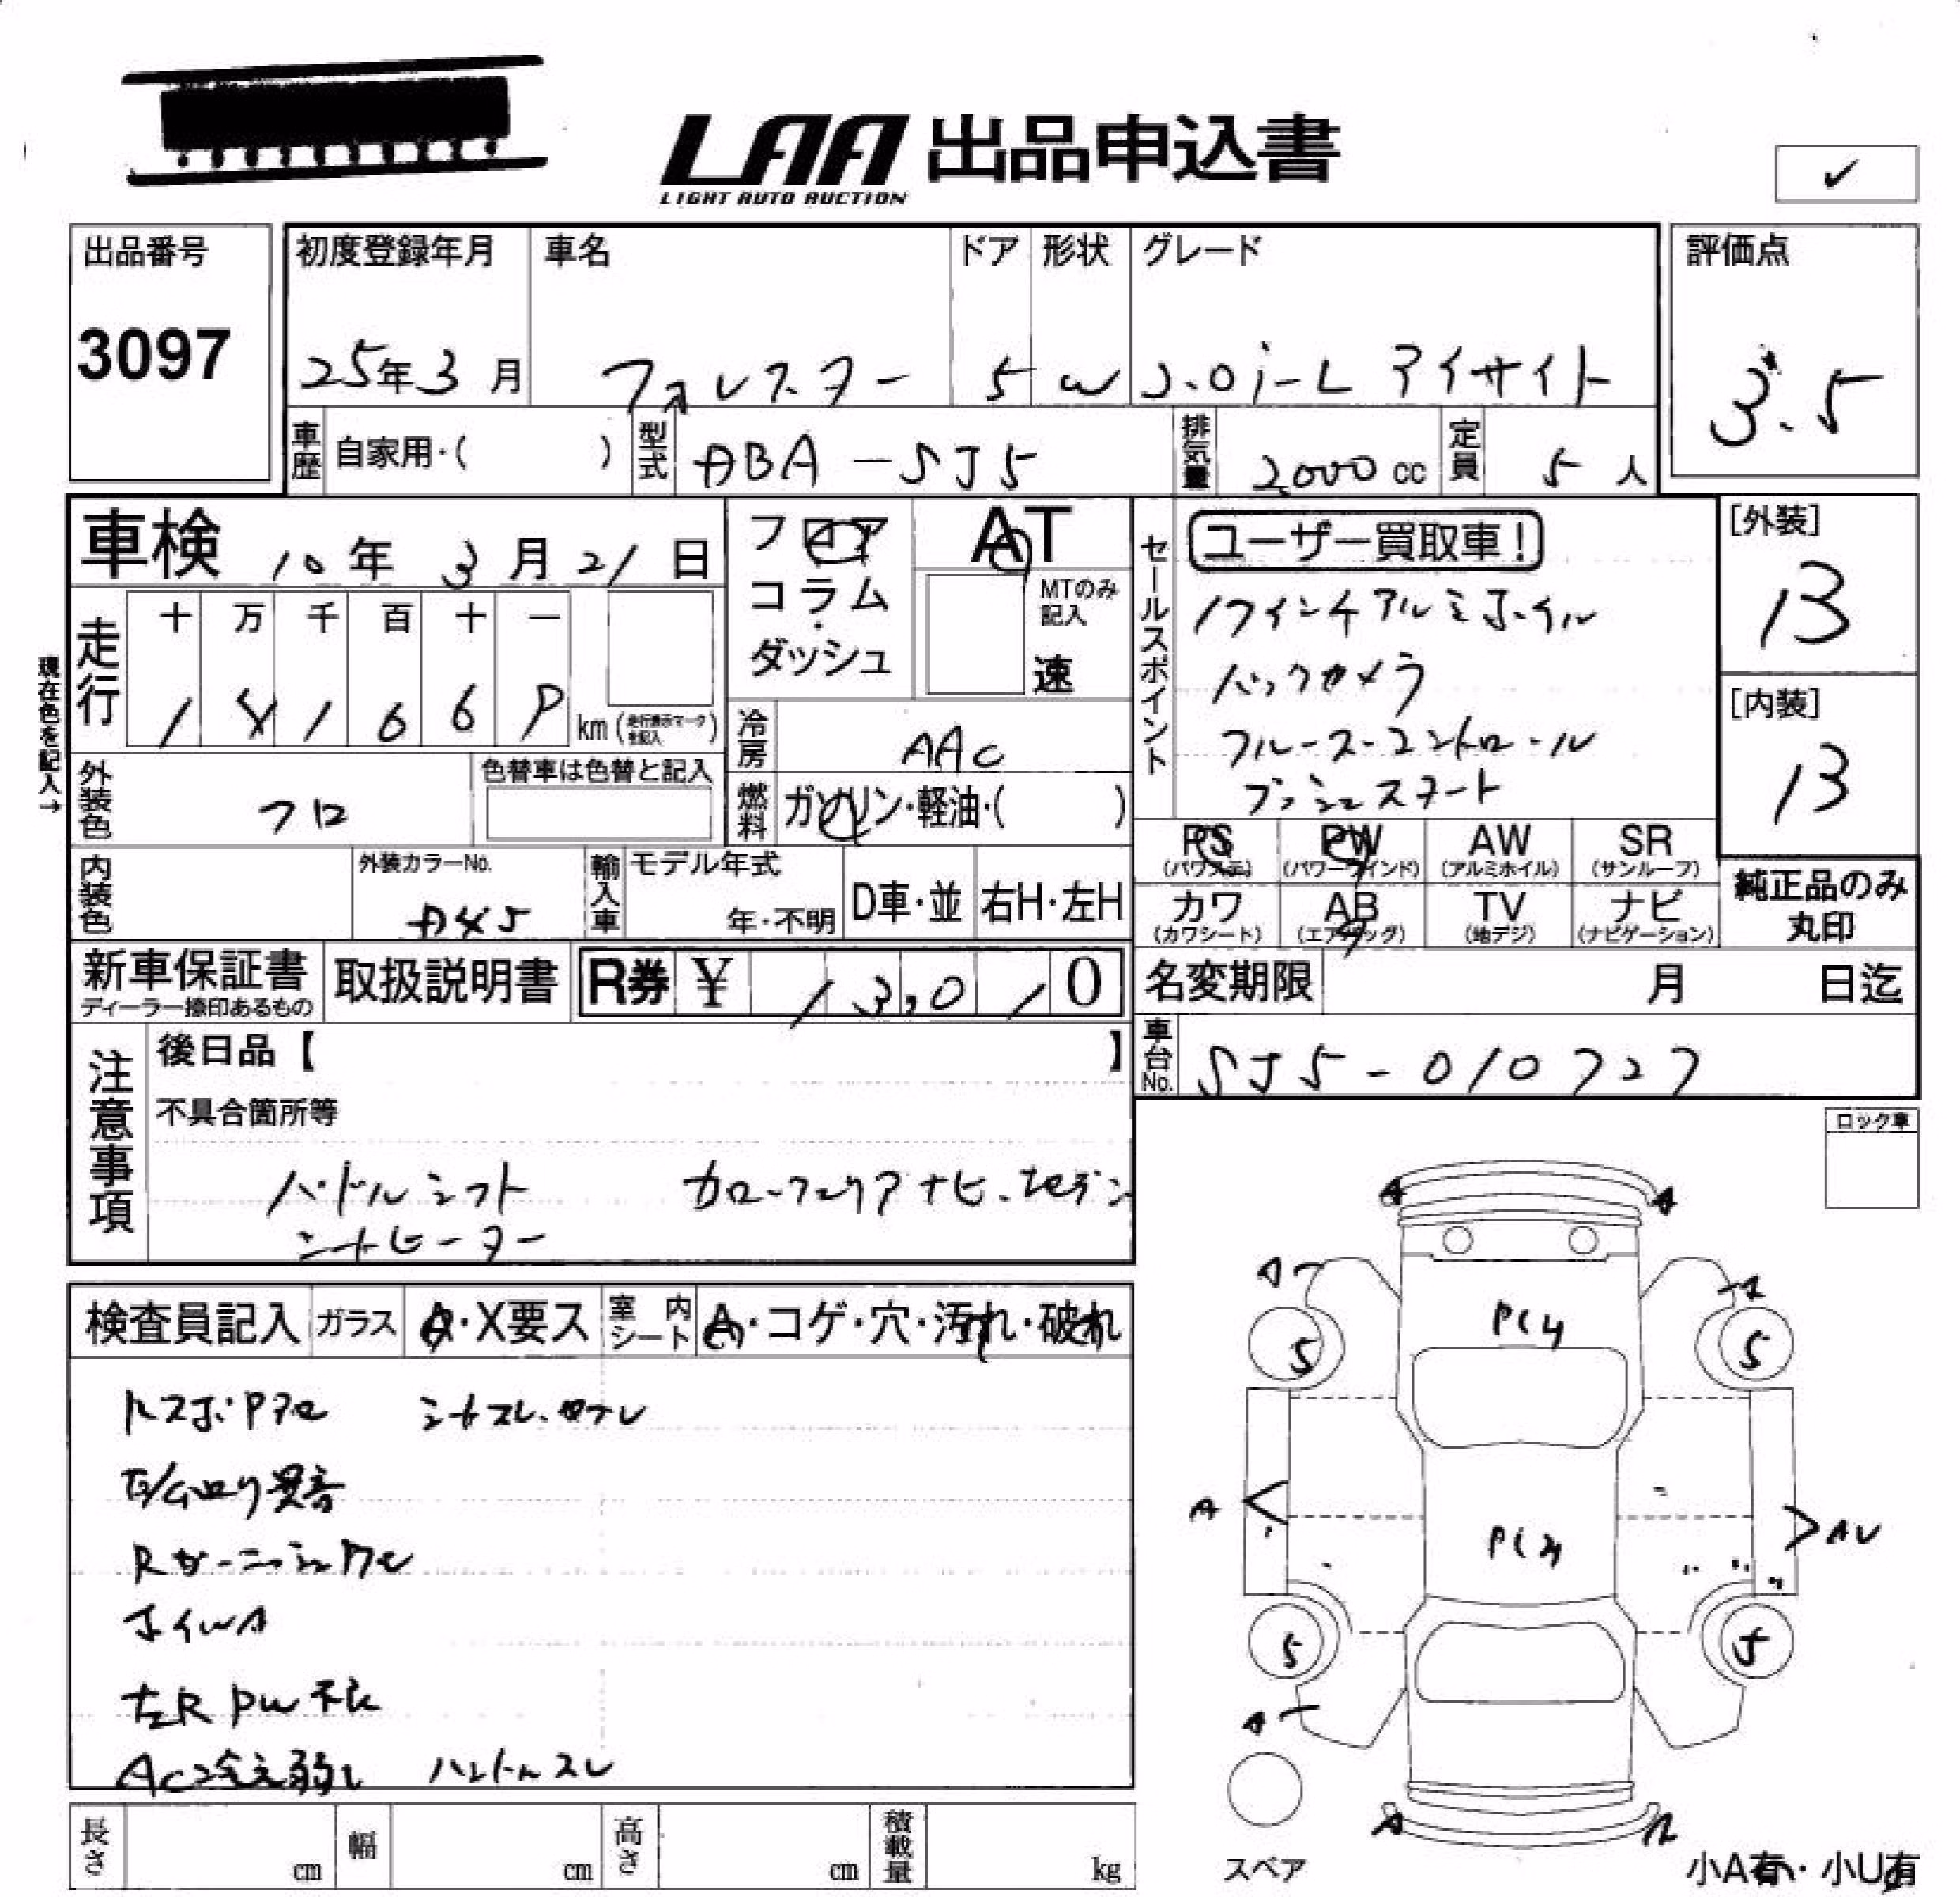 LAA 出品申込書
LIGHT AUTO AUCTION
✓
出品番号
3097
初度登録年月
25年3月
車名
フォレスター
ドア
5
形状
W
グレード
2.0i-L アイサイト
評価点
3.5
車歴 自家用・( )
型式 ABA-SJ5
排気量 2000cc
定員 5人
車検 10年3月21日
フロア
コラム
・
ダッシュ
AT
MTのみ
記入
速
セールスポイント
ユーザー買取車!
17インチアルミホイル
バックカメラ
クルーズコントロール
プッシュスタート
[外装]
13
[内装]
13
現在色を記入→
走行
十 万 千 百 十 一
km(走行表示マークを記入)
冷房 AAC
燃料 ガソリン・軽油・( )
外装色 クロ
色替車は色替と記入
内装色
外装カラーNo.
輸入車
モデル年式
年・不明
D車・並
右H・左H
PS
(パワステ)
PW
(パワーウインド)
AW
(アルミホイル)
SR
(サンルーフ)
カワ
(カワシート)
AB
(エアバッグ)
TV
(地デジ)
ナビ
(ナビゲーション)
純正品のみ
丸印
新車保証書
ディーラー捺印あるもの
取扱説明書
R券 ¥ 13,010
名変期限 月 日迄
車台No. SJ5-010727
注意事項
後日品【 】
不具合箇所等
パドルシフト
シートヒーター
ロック車
検査員記入
ガラス
A・X要ス
室内シート
A・コゲ・穴・汚れ・破れ
異音
ホイルA
左R PW不良
AC冷え弱し ハンドルスレ
A
A
A
A
5
5
A
AU
5
5
A
A
スペア
小A有・小U有
長さ cm
幅 cm
高さ cm
積載量 kg